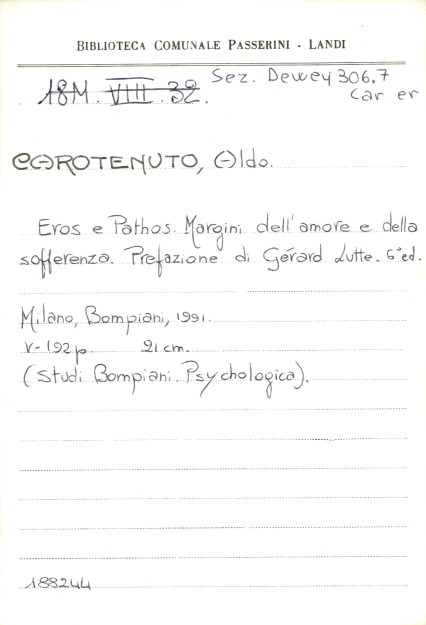 BIBLIOTECA COMUNALE PASSERINI - LANDI
18M. VIII. 32. Sez. Dewey 306.7
Car er
CAROTENUTO, Aldo.
Eros e Pathos. Margini dell'amore e della
sofferenza. Prefazione di Gérard Lutte. 6ª ed.
Milano, Bompiani, 1991.
V-192 p. 21 cm.
(Studi Bompiani. Psychologica).
188244